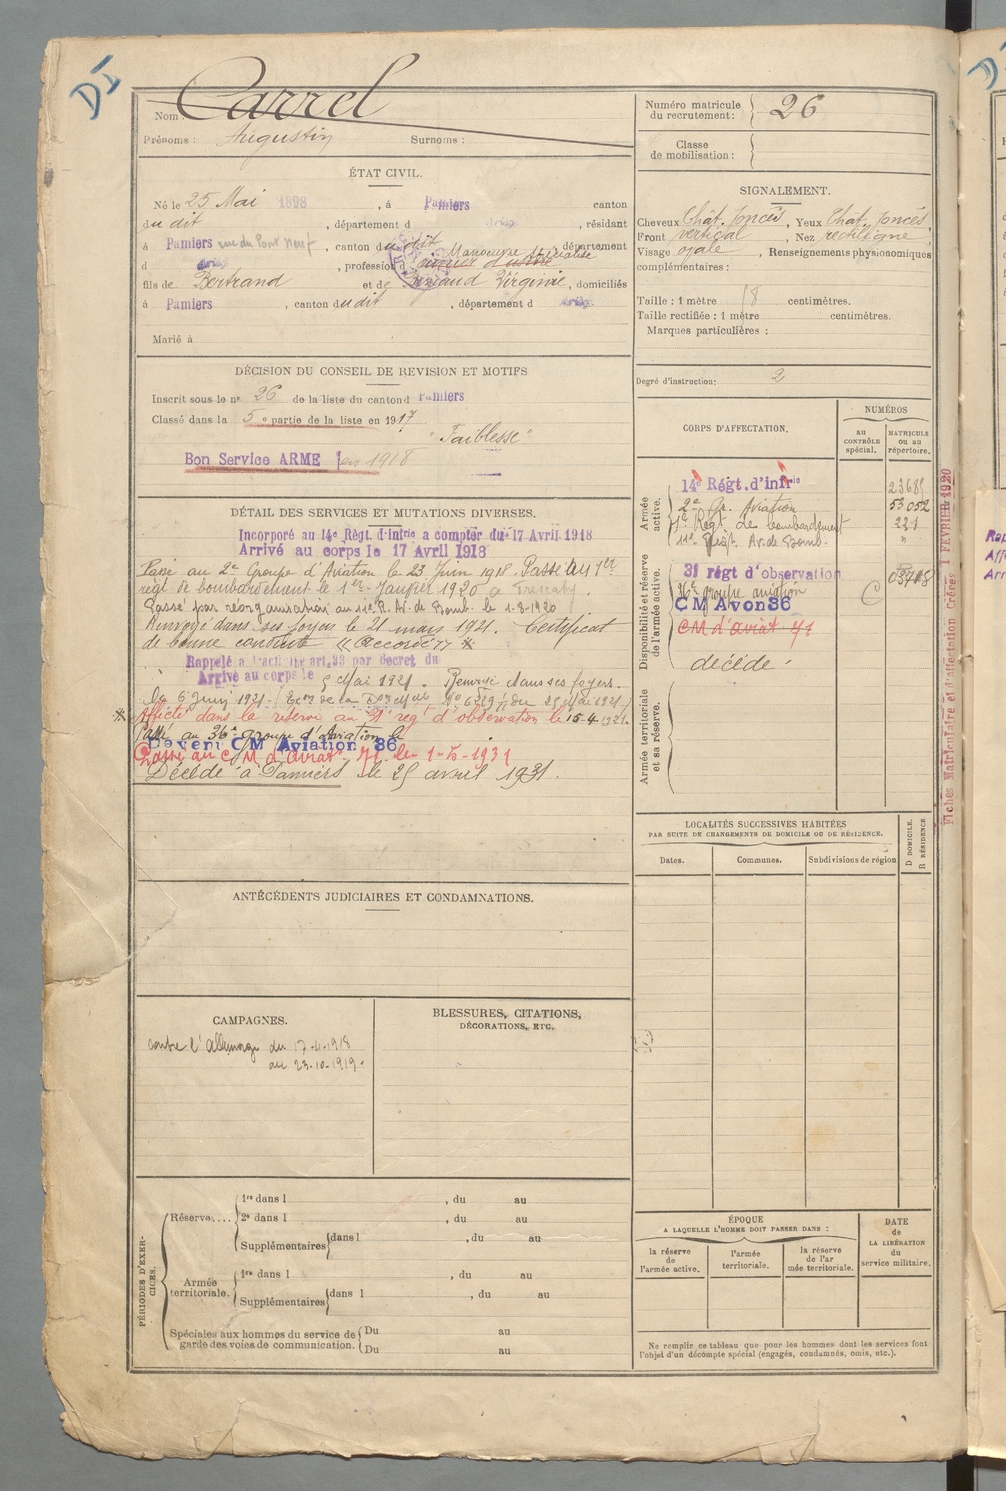 DI
Nom : Carrel
Prénoms : Augustin Surnoms :
Numéro matricule du recrutement : 26
Classe de mobilisation :
ÉTAT CIVIL.
Né le 25 Mai 1898, à Pamiers canton
du dit, département d Ariège, résidant
à Pamiers rue du Pont Neuf, canton du dit département
Manoeuvre spécialisé
d Ariège, profession d
fils de Bertrand et de Virginie, domiciliés
à Pamiers, canton du dit, département d Ariège
Marié à
SIGNALEMENT.
Cheveux Chât. foncés, Yeux Chat. foncés,
Front vertical, Nez rectiligne
Visage ovale, Renseignements physionomiques
complémentaires :
Taille : 1 mètre centimètres.
Taille rectifiée : 1 mètre centimètres.
Marques particulières :
Degré d'instruction : 2
DÉCISION DU CONSEIL DE REVISION ET MOTIFS
Inscrit sous le n° 26 de la liste du canton d Pamiers
Classé dans la 5e partie de la liste en 1917
"Faiblesse"
Bon Service ARMÉ en 1918
DÉTAIL DES SERVICES ET MUTATIONS DIVERSES.
Incorporé au 14e Régt. d'Inf'rie a compter du 17 Avril 1918
Arrivé au corps le 17 Avril 1918
Passé au 2e Groupe d'Aviation le 23 Juin 1918 Passé au 1er
régt de bombardement le 1er Janvier 1920
Passé par réorganisation au 11e R. Av. de Bomb. le 1-8-1920
Renvoyé dans ses foyers le 21 mars 1921. Certificat
de bonne conduite "Accordé" *
Rappelé à l'activité art. 33 par decret du
Arrivé au corps le 5 Mai 1921. Renvoyé dans ses foyers
le 6 Juin 1921
* Affecté dans la réserve au 31e régt d'observation le 15-4-1921.
Passé au 36e groupe d'Aviation le
Devenu CM Aviation 36
Passé au C M d'aviat. 71 le 1-5-1931
Décédé à Pamiers le 25 avril 1931.
CORPS D'AFFECTATION.
NUMÉROS
au CONTRÔLE spécial.
MATRICULE ou au répertoire.
Armée active.
14e Régt. d'inf'rie
2e Gr. Aviation 53052
1er Régt. de bombardement 221
11e Régt. Av. de Bomb. "
Disponibilité et réserve de l'armée active.
31 régt d'observation
36e groupe aviation C
C M Avon 36
CM d'aviat 71
décédé.
Armée territoriale et sa réserve.
Fiches Matriculaire et d'affectation Créées 1 FEVRIER 1920
LOCALITÉS SUCCESSIVES HABITÉES
PAR SUITE DE CHANGEMENTS DE DOMICILE OU DE RÉSIDENCE.
Dates. Communes. Subdivisions de région
D DOMICILE.
R RÉSIDENCE
ANTÉCÉDENTS JUDICIAIRES ET CONDAMNATIONS.
CAMPAGNES.
contre l'Allemagne du 17-4-1918
au 23-10-1919.
BLESSURES, CITATIONS,
DÉCORATIONS, ETC.
PÉRIODES D'EXERCICES.
Réserve....
1re dans l , du au
2e dans l , du au
Supplémentaires dans l , du au
Armée territoriale.
1re dans l , du au
Supplémentaires dans l , du au
Spéciales aux hommes du service de
garde des voies de communication.
Du au
Du au
ÉPOQUE
A LAQUELLE L'HOMME DOIT PASSER DANS :
la réserve de l'armée active.
l'armée territoriale.
la réserve de l'armée territoriale.
DATE
de
LA LIBÉRATION
du
service militaire.
Ne remplir ce tableau que pour les hommes dont les services font
l'objet d'un décompte spécial (engagés, condamnés, omis, etc.).